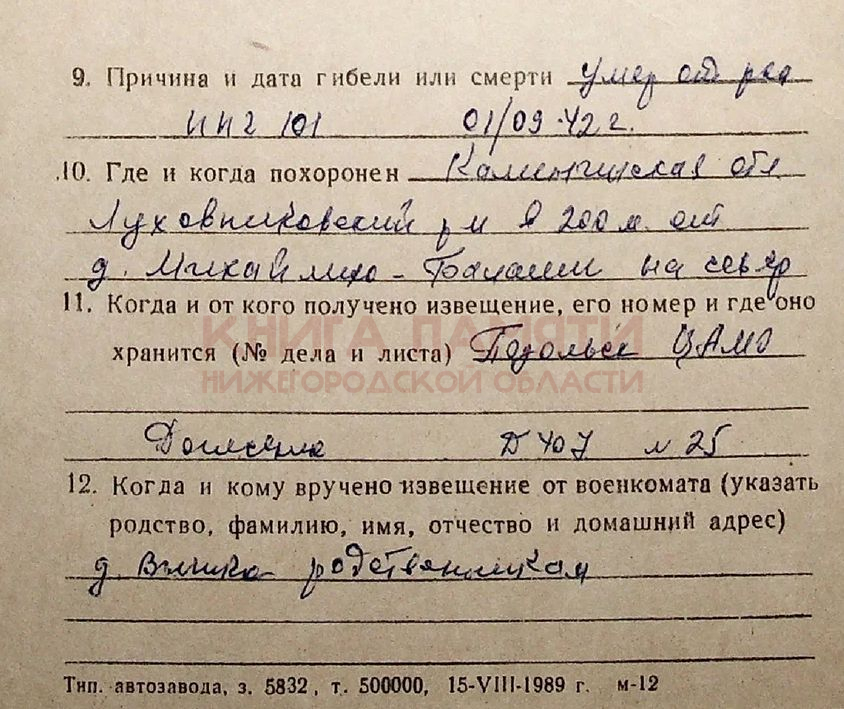 9. Причина и дата гибели или смерти умер от ран
ППГ 101 01/09.42 г.
10. Где и когда похоронен Калининская обл
Луховниковский р-н в 200 м. от
д. Михайлихо- на север
11. Когда и от кого получено извещение, его номер и где оно
хранится (№ дела и листа) Подольск ЦАМО
КНИГА ПАМЯТИ
НИЖЕГОРОДСКОЙ ОБЛАСТИ
Донесение Д 407 л 25
12. Когда и кому вручено извещение от военкомата (указать
родство, фамилию, имя, отчество и домашний адрес)
д. родственникам
Тип. автозавода, з. 5832, т. 500000, 15-VIII-1989 г. м-12